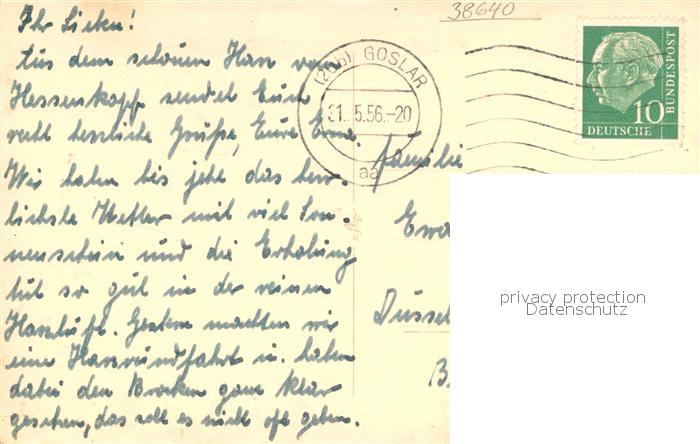 38640
Ihr Lieben!
Aus dem schönen Haus vom
Hessenkopf sendet Euch
recht herzliche Grüße, Eure Erna.
Wir haben bis jetzt das herr-
lichste Wetter mit viel Son-
nenschein und die Erholung
tut so gut in der reinen
Harzluft. Gestern machten wir
eine Harzrundfahrt u. haben
dabei den Brocken ganz klar
gesehen, das soll es nicht oft geben.
(20b) GOSLAR
31.5.56.-20
aa
10
DEUTSCHE
BUNDESPOST
Familie
Ewa
Düssel
B
privacy protection
Datenschutz